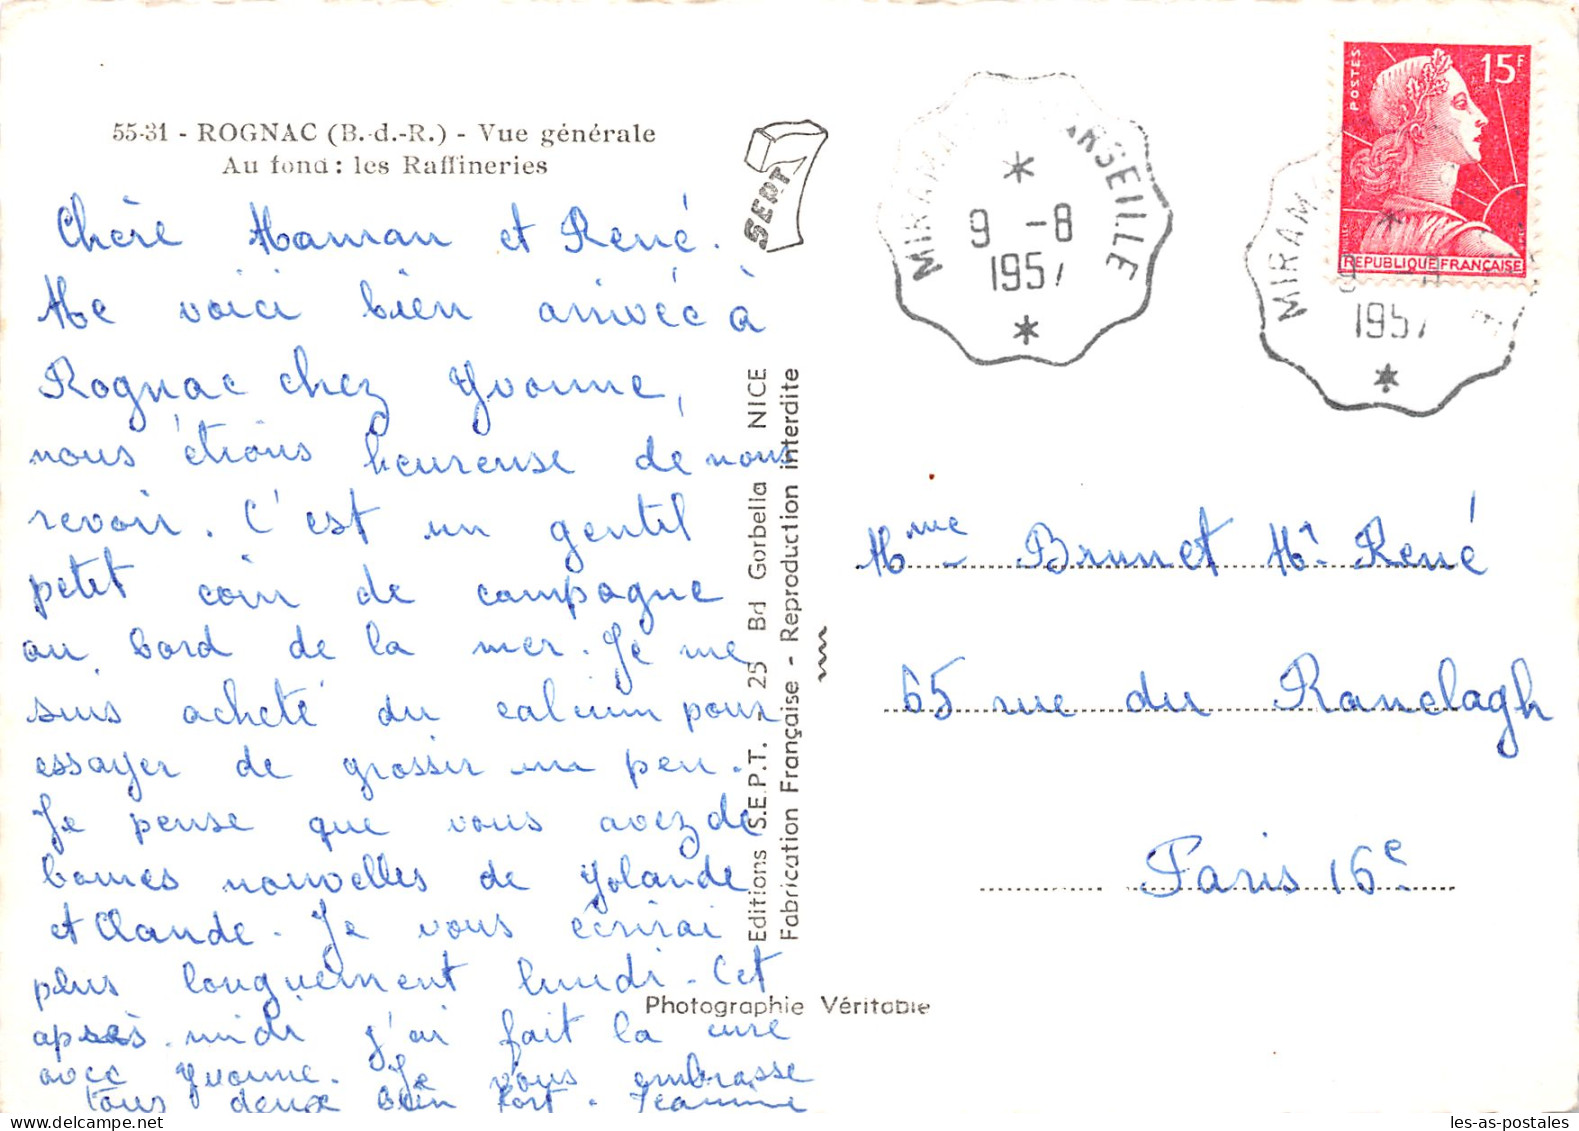 55-31 - ROGNAC (B.-d.-R.) - Vue générale
Au fond : les Raffineries
Chère Maman et René.
Me voici bien arrivée à
Rognac chez Yvonne,
nous étions heureuse de nous
revoir. C'est un gentil
petit coin de campagne
au bord de la mer. Je me
suis acheté du calcium pour
essayer de grossir un peu.
Je pense que vous avez de
bonnes nouvelles de Yolande
et Claude. Je vous écrirai
plus longuement lundi. Cet
après-midi j'ai fait la
avec Yvonne. Je vous embrasse
tous deux bien fort. Jeannine
SEPT
Editions S.E.P.T. - 25 Bd Gorbella NICE
Fabrication Française - Reproduction interdite
Photographie Véritable
MIRAMAS MARSEILLE
9 -8
1957
MIRAM
9 -8
1957
POSTES
15F
REPUBLIQUE FRANÇAISE
Mme Brunet Mr René
65 rue du Ranelagh
Paris 16e
les-as-postales